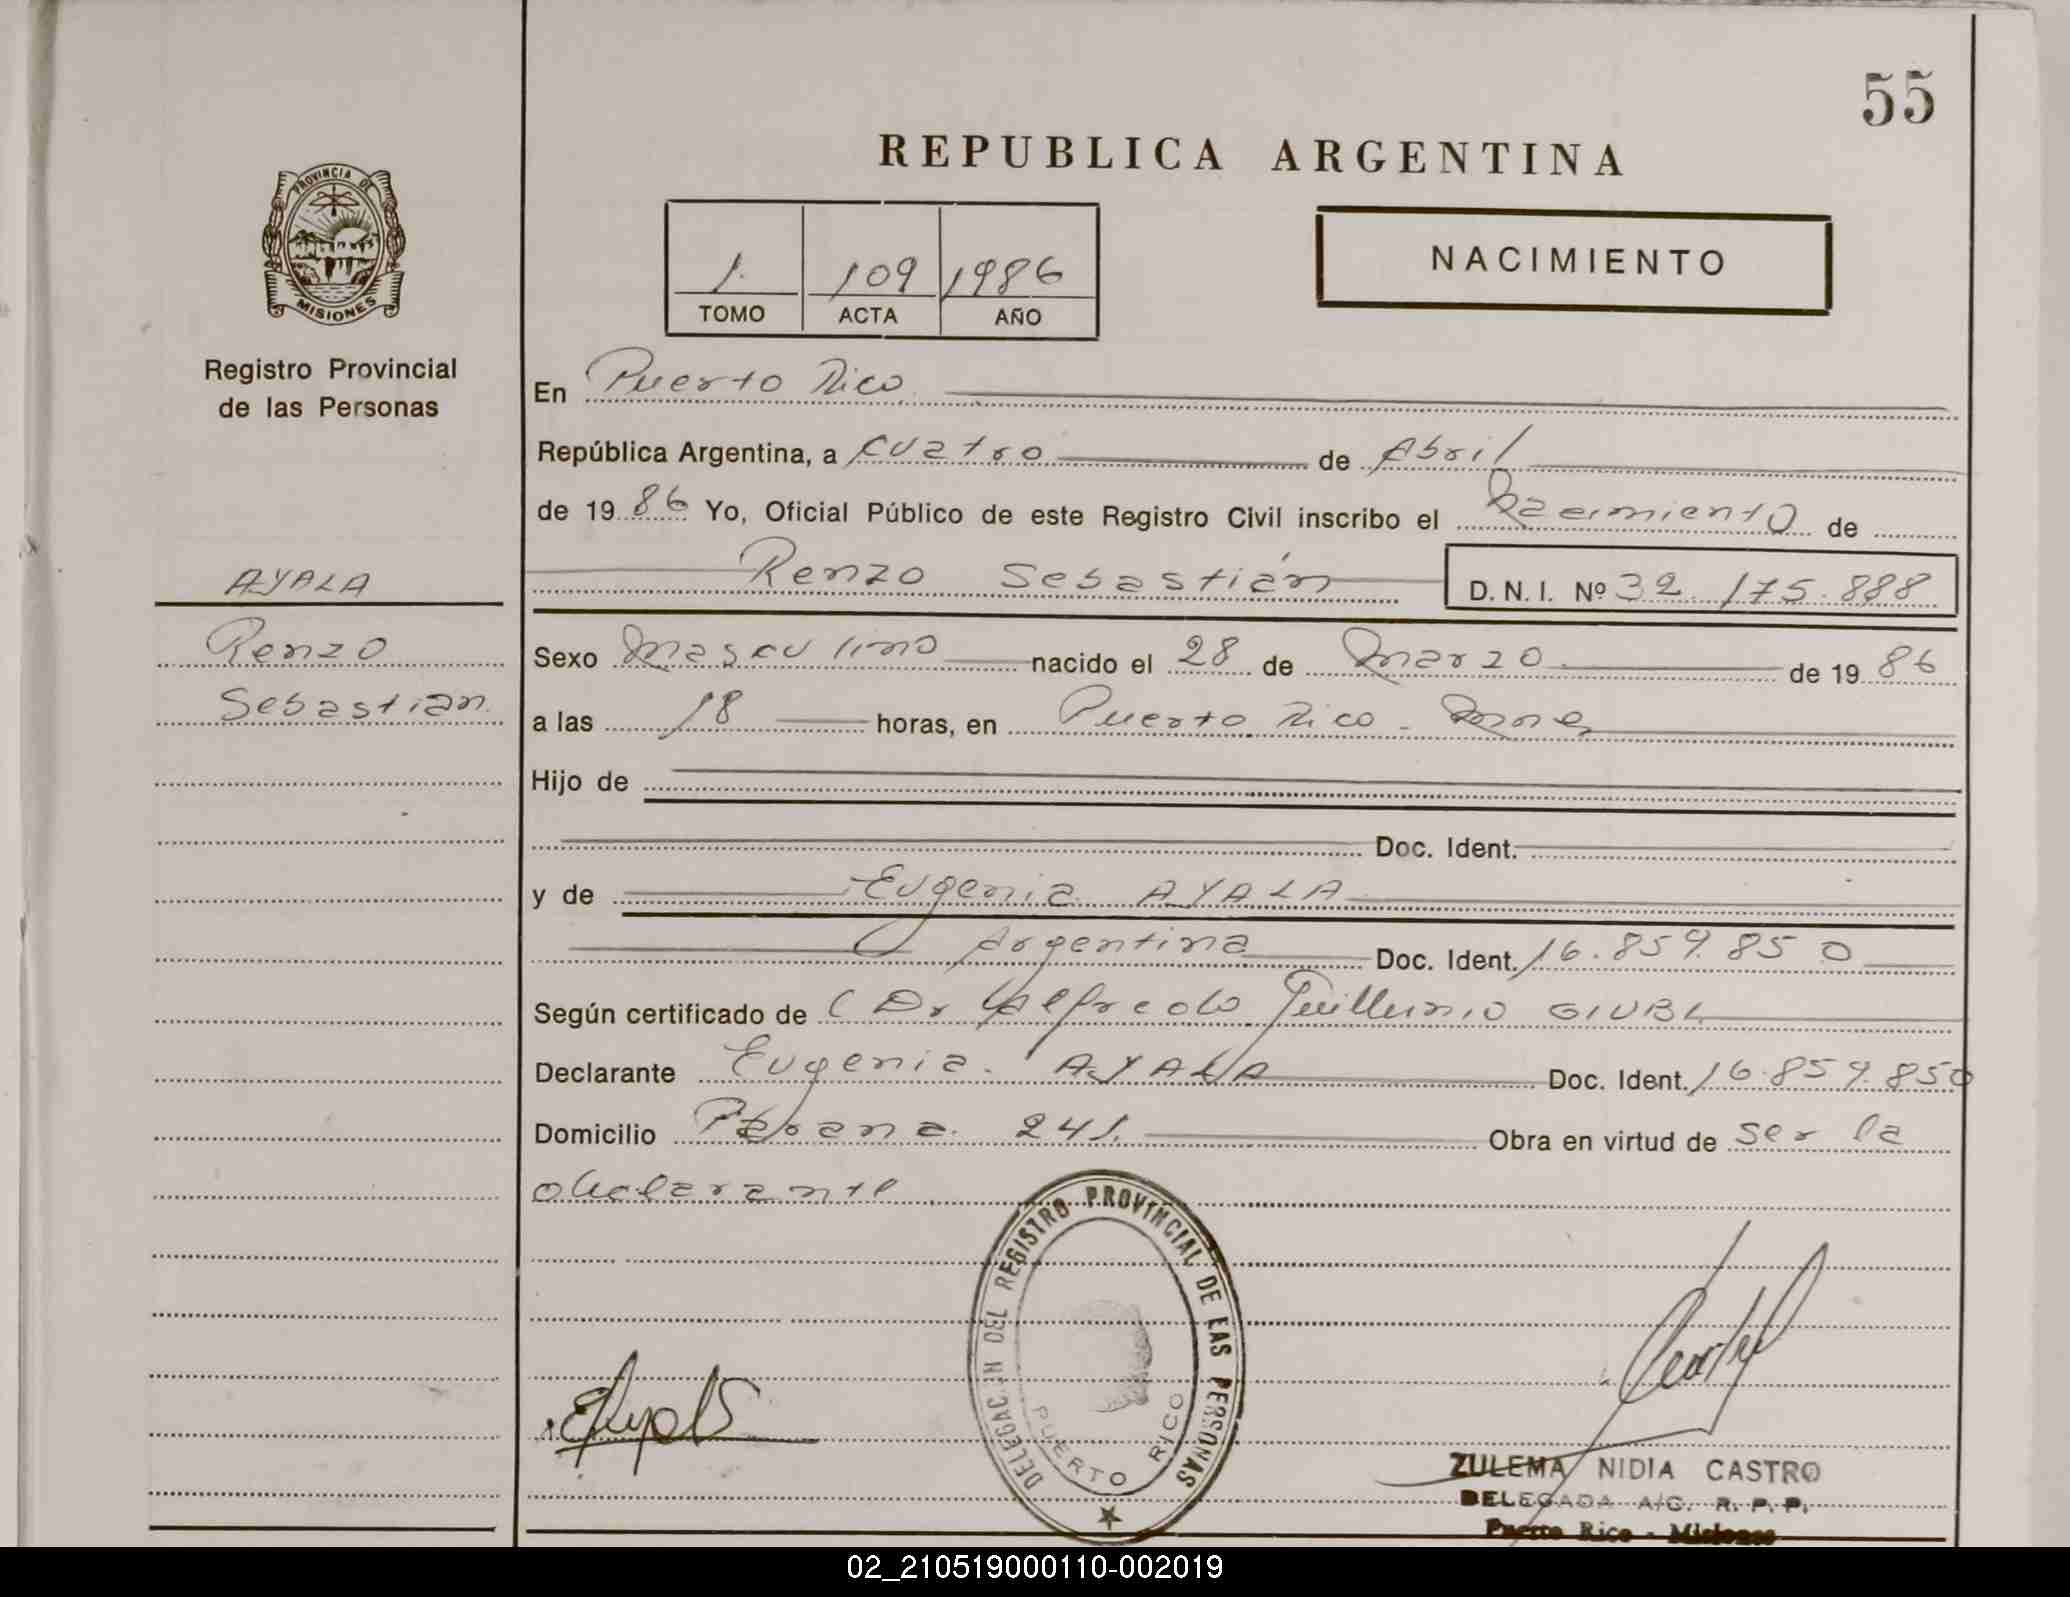 55
REPUBLICA ARGENTINA
PROVINCIA DE
MISIONES
Registro Provincial
de las Personas
1. 109 1986
TOMO ACTA AÑO
NACIMIENTO
En Puerto Rico
República Argentina, a cuatro de Abril
de 1986 Yo, Oficial Público de este Registro Civil inscribo el Nacimiento de
Renzo Sebastián D. N. I. Nº 32.175.888
AYALA
Renzo
Sebastián
Sexo Masculino nacido el 28 de Marzo de 1986
a las 18 horas, en Puerto Rico - Mnes
Hijo de
Doc. Ident.
y de Eugenia AYALA
Argentina Doc. Ident. 16.859.850
Según certificado de (Dr Alfredo Guillermo
Declarante Eugenia AYALA Doc. Ident. 16.859.850
Domicilio Parana 241. Obra en virtud de ser la
declarante
DELEGACION DEL REGISTRO PROVINCIAL DE LAS PERSONAS
PUERTO RICO
ZULEMA NIDIA CASTRO
DELEGADA A/C. R. P. P.
Puerto Rico - Misiones
02_210519000110-002019